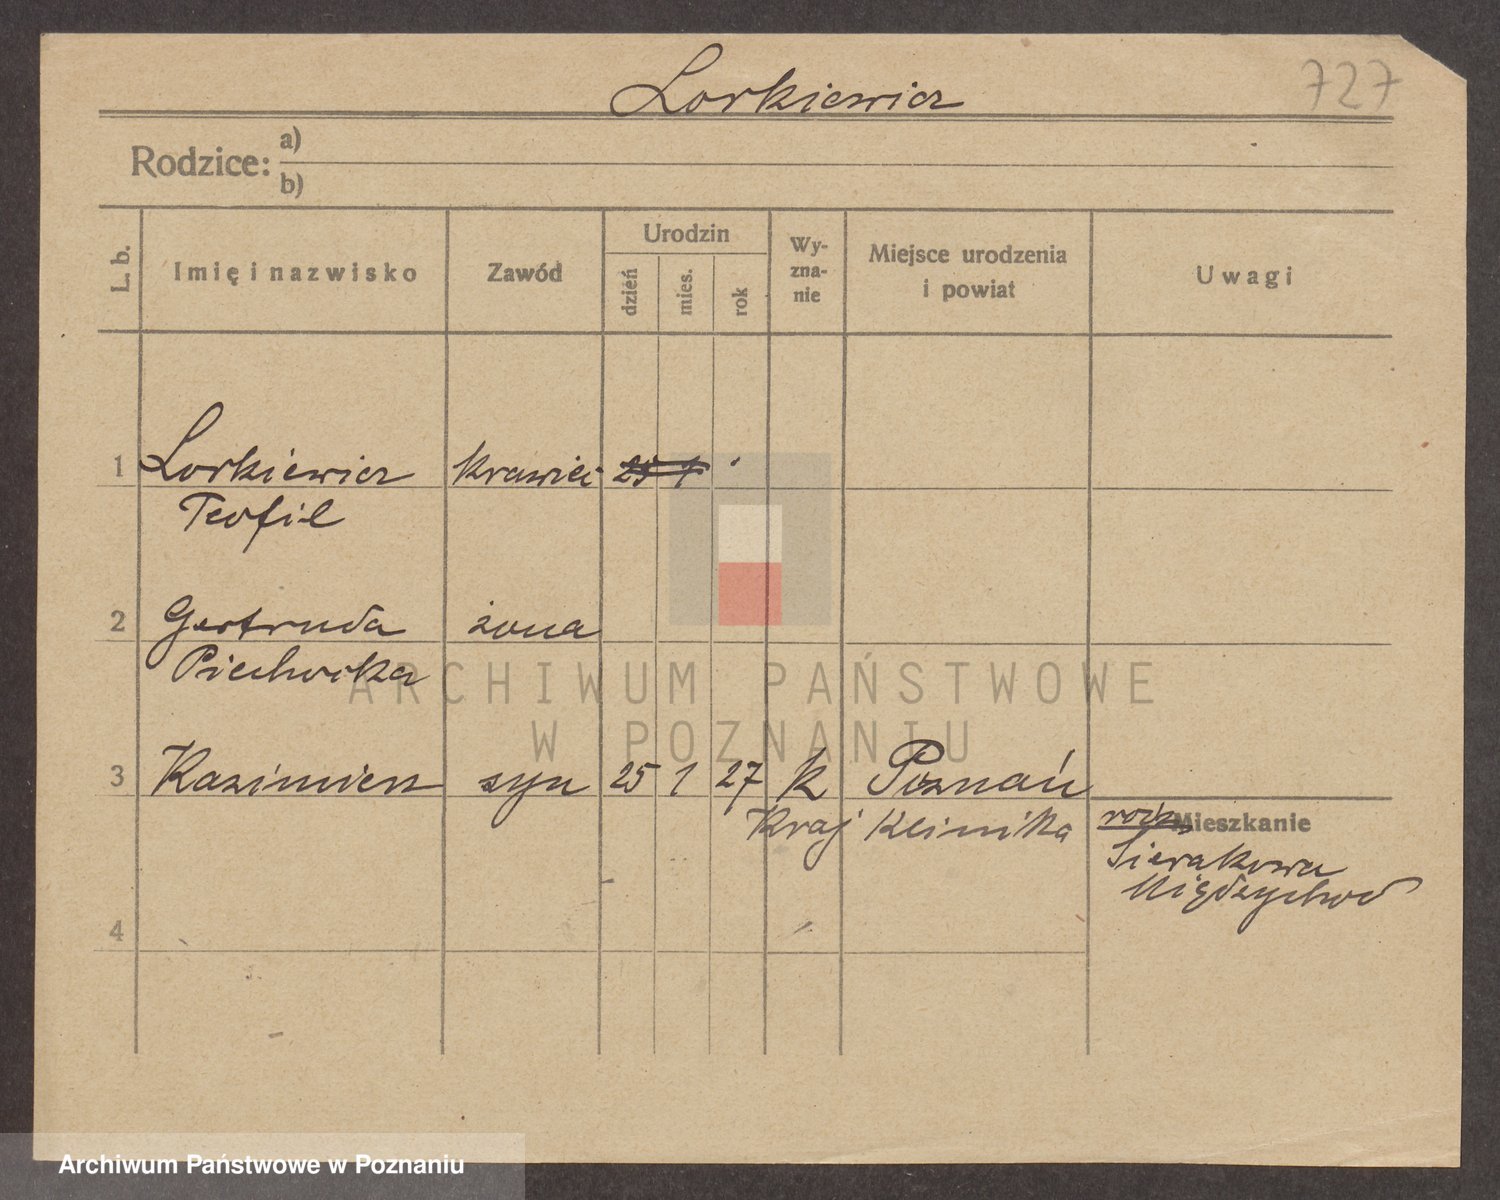 Lorkiewicz
727
Rodzice: a)
b)
L. b.
Imię i nazwisko
Zawód
Urodzin
dzień
mies.
rok
Wy-
zna-
nie
Miejsce urodzenia
i powiat
Uwagi
1 Lorkiewicz krawiec 25 1
Teofil
2 Gertruda żona
Piechocka
3 Kazimierz syn 25 1 27 k Poznań
Kraj Klinika
Mieszkanie
Sierakowa
Międzychod
4
ARCHIWUM PAŃSTWOWE
W POZNANIU
Archiwum Państwowe w Poznaniu